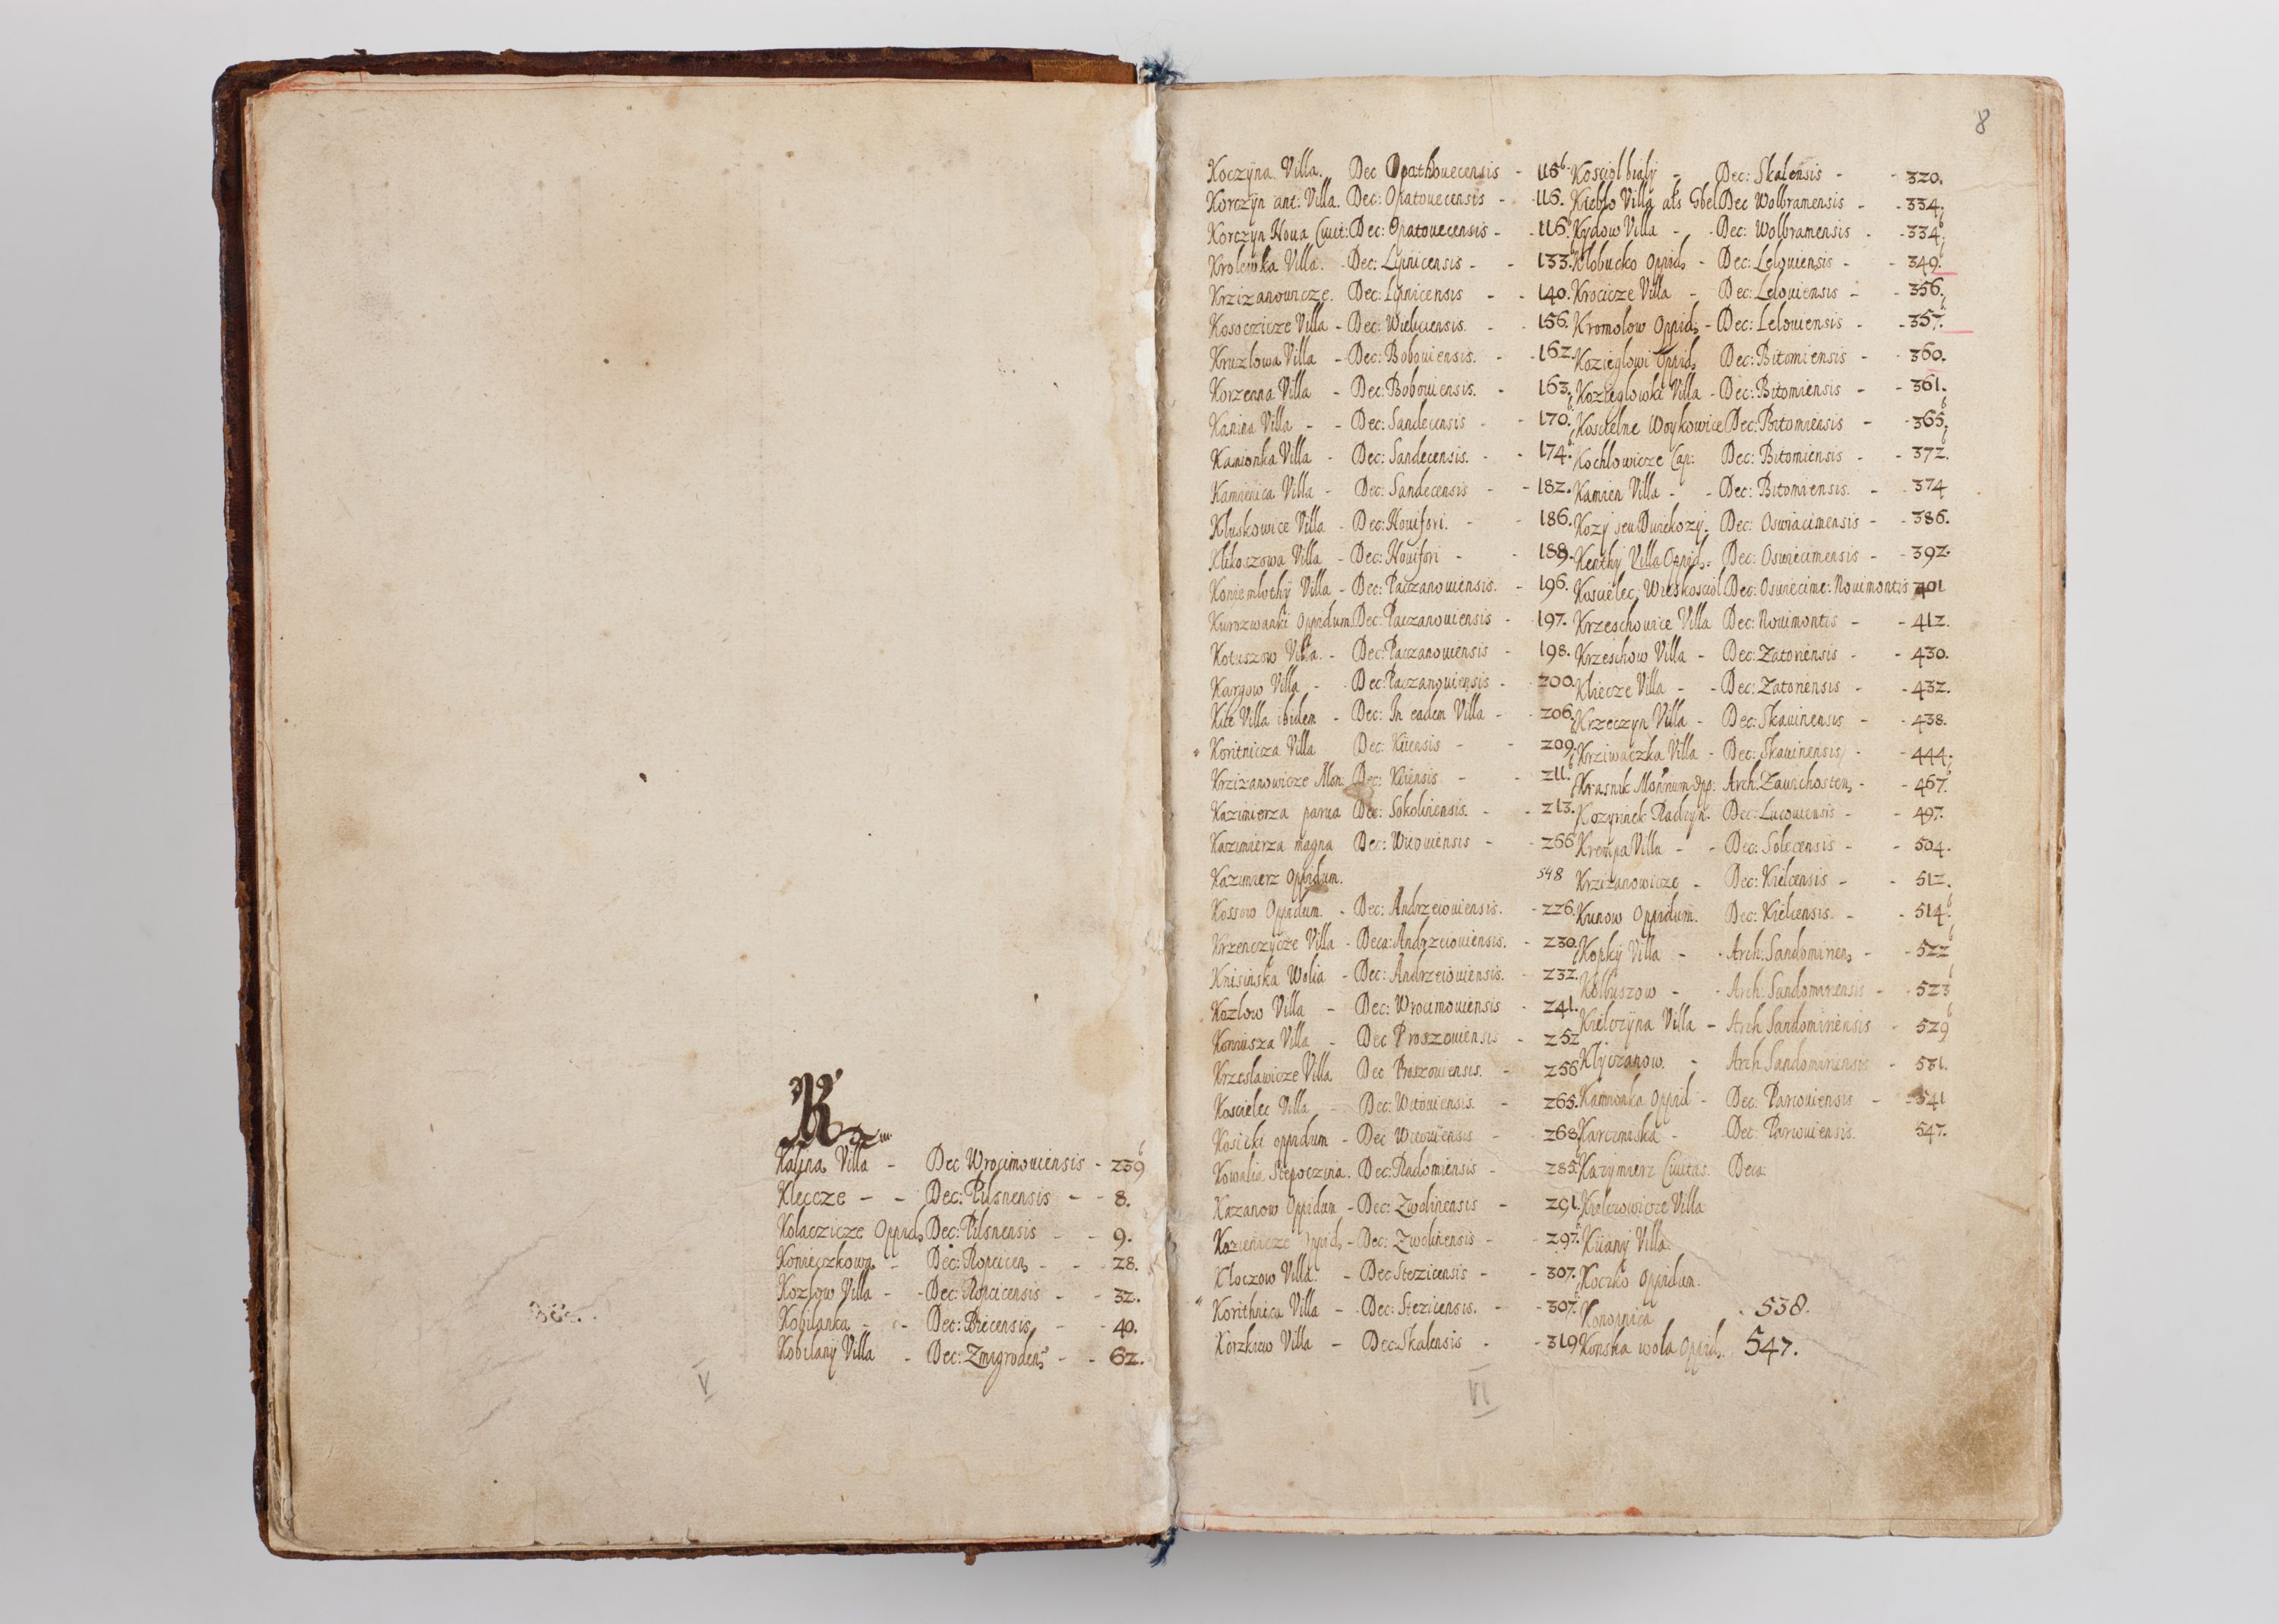 K
Kalina Villa - Dec Wrocimouiensis - 239 b
Klecze - - Dec: Pilsnensis - - 8.
Kolaczicze Oppid, Dec: Pilsnensis - - 9.
Konieczkowa - Dec: Ropcicen, - - 28.
Kozlow Villa - - Dec: Ropcicensis - - 32.
Kobilanka - - Dec: Biecensis, - - 40.
Kobilany Villa - Dec: Zmigroden, - - 62.
V
8
Koczyna Villa. Dec Opathouecensis - 115 b
Korczyn ant: Villa. Dec: Opatouecensis - 116.
Korczyn Noua Ciuit: Dec: Opatouecensis - 116. b
Krolewka Villa. - Dec: Lipnicensis - - 133.
Krzizanowicze. Dec: Lipnicensis - - 140.
Kosoczicze Villa - Dec: Wieliciensis. - 156.
Kruzlowa Villa - Dec: Bobouiensis. - 162.
Korzenna Villa - Dec: Bobouiensis. - 163.
Kanina Villa - - Dec: Sandecensis - - 170. b
Kamionka Villa - Dec: Sandecensis. - - 174. b
Kamienica Villa - Dec: Sandecensis - - 182.
Kluskowice Villa - Dec: Nouifori. - - 186.
Klikoszowa Villa - Dec: Nouifori - - 188.
Koniemlothy Villa - Dec: Paczanouiensis. - 196.
Kurozwanki Oppidum Dec: Paczanouiensis - 197.
Kotuszow Villa. - Dec: Paczanouiensis - 198.
Kargow Villa - - Dec: Paczanouiensis - 200.
Kiie Villa ibidem - Dec: In eadem Villa - 206.
Koritnicza Villa Dec: Kiiensis - - 209.
Krzizanowicze Mon: Dec: Kiiensis - - 211. b
Kazimierza parua Dec: Sokolinensis. - - 213.
Kazimierza magna Dec: Witouiensis - - 266
Kazimierz Oppidum. 548
Kossow Oppidum. - Dec: Andrzeiouiensis. - 226.
Krzenczycze Villa - Deca: Andrzeiouiensis. - 230.
Knisinska Wolia - Dec: Andrzeiouiensis. - 232.
Kozlow Villa - Dec: Wrocimouiensis - 241.
Koniusza Villa - Dec Proszouiensis - 252
Krzeslawicze Villa Dec Proszouiensis. - 256
Koscielec Villa - Dec: Witouiensis. - 265.
Kosicki oppidum - Dec Witouiensis - 268.
Kowalia Stepoczina. Dec: Radomiensis - 285.
Kazanow Oppidum - Dec: Zwolinensis - 291.
Kozienicze Oppid, - Dec: Zwolinensis - - 297. b
Kloczow Villa: - Dec Stezicensis - - 307.
Korithnica Villa - - Dec: Stezicensis. - - 307. b
Korzkiew Villa - Dec: Skalensis - - 319
Kosciol bialy - Dec: Skalensis - - 320.
Kieblo Villa als Gbel Dec Wolbramensis - - 334.
Kydow Villa - - Dec: Wolbramensis - - 334. b
Klobucko Oppid, - Dec: Lelouiensis - - 349. b
Krocicze Villa - Dec: Lelouiensis - - 356.
Kromolow Oppid, - Dec: Lelouiensis - - 357. b
Kozieglowi Oppid, Dec: Bitomiensis - - 360.
Kozieglowki Villa - Dec: Bitomiensis - - 361.
Koscielne Woykowice Dec: Bitomiensis - - 365. b
Kochlowicze Cap: Dec: Bitomiensis - - 372. b
Kamien Villa - - Dec: Bitomiensis. - - 374
Kozy seu Dwiekozy. Dec: Oswiacimensis - - 386.
Kenthy Villa Oppid, - Dec: Oswiecimensis - - 392.
Koscielec, Wieskosciol Dec: Oswiecime: Nouimontis 401
Krzeschowice Villa Dec: Nouimontis - - 412.
Krzeschow Villa - Dec: Zatoriensis - - 430.
Kliecze Villa - - Dec: Zatoriensis - - 432.
Krzeczyn Villa - Dec: Skauinensis - - 438.
Krziwaczka Villa - Dec: Skauinensis, - - 444.
Krasnik Monrum Opp: Arch: Zauichosten, - - 467. b
Kozyrinek Radzyn. Dec: Lucouiensis - - 497.
Krempa Villa - - Dec: Solecensis - - 504.
Krzizanowicze - Dec: Kielcensis - - 512.
Kunow Oppidum. Dec: Kielcensis. - - 514. b
Kopky Villa - - Arch: Sandomirien, - - 522 b
Kolbuszow - - Arch: Sandomiriensis - - 523 b
Kielczyna Villa - Arch Sandomiriensis - 529 b
Klyczanow. - Arch Sandomiriensis - 531.
Kamionka Oppid - Dec: Parcouiensis - - 541
Karczmiska - Dec: Parcouiensis. 547.
Kazymierz Ciuitas. Deca:
Kielczowicze Villa
Kiiany Villa.
Koczko Oppidum.
Konopnica - 538.
Konska wola Oppid, 547.
VI